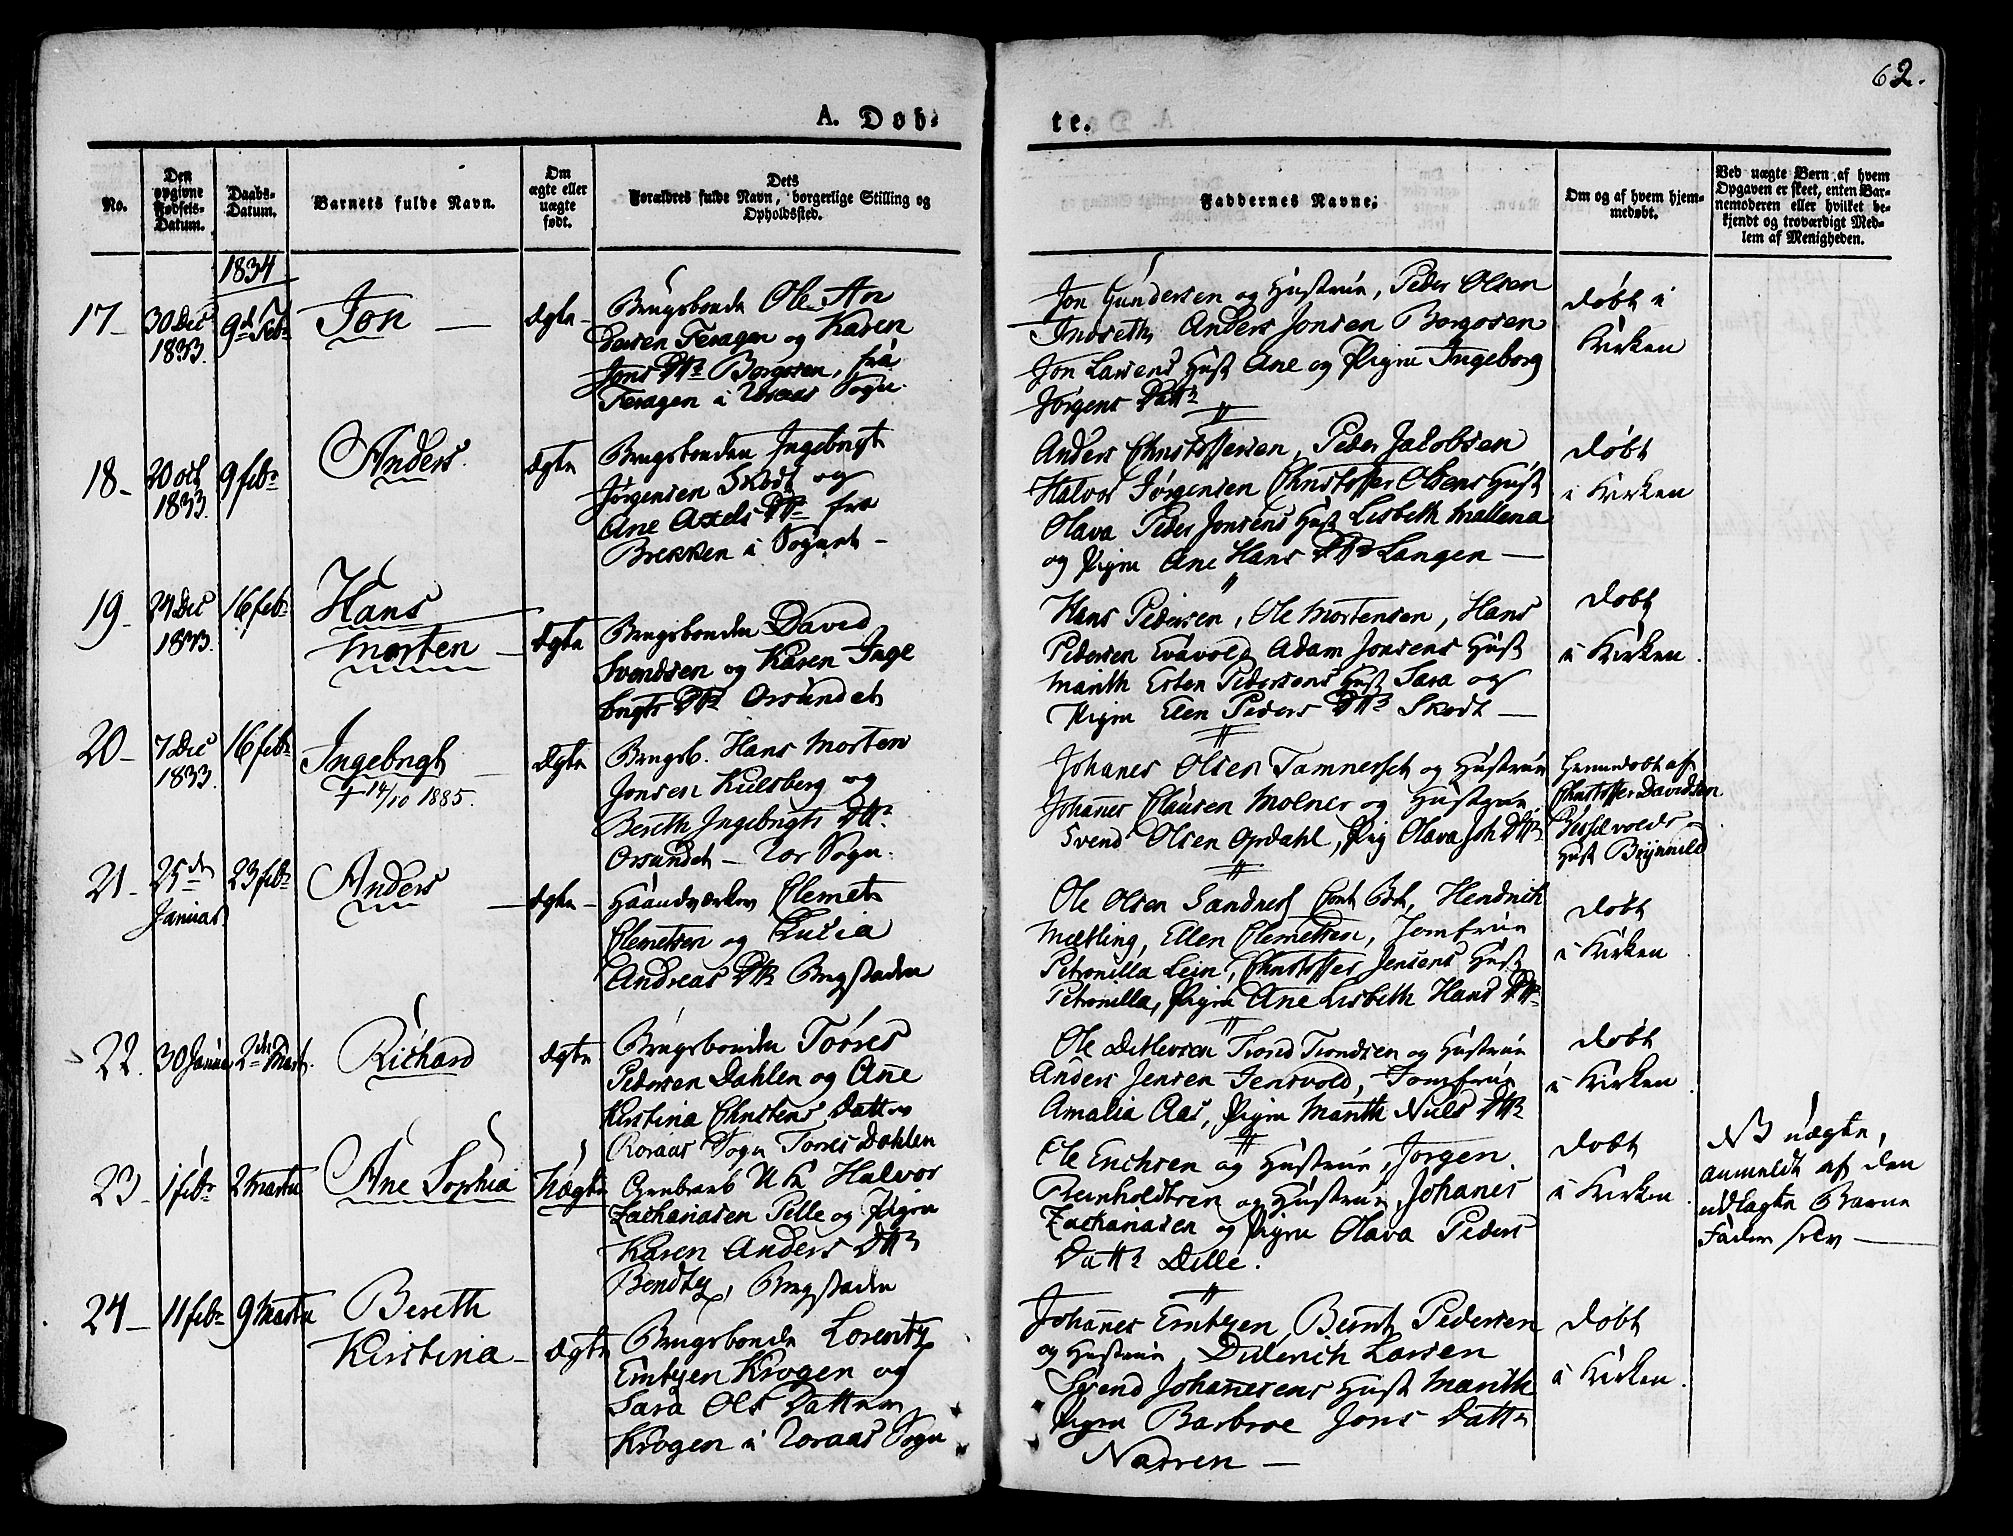 62.
A. Døb-
te.
No.
Den
opgivne
Fødsels-
Datum.
Daabs-
Datum.
Barnets fulde Navn.
Om
ægte eller
uægte
født.
Dets
Forældres fulde Navn, borgerlige Stilling og
Opholdssted.
Faddernes Navne.
Om og af hvem hjem-
medøbt.
Ved uægte Børn af hvem
Opgaven er skeet, enten Bar-
nemoderen eller hvilket be-
kjendt og troværdigt Med-
lem af Menigheden.
1834
17-
30 Dec
1833.
9de Feb
Jon
Ægte
Brugsbonde Ole An
dersen Feragen og Karen
Jons Dtr Borgosen, fra
Feragen i Roraas Sogn.
Jon Gundersen og Hustrue, Peder Olsen
Anders Jonsen Borgosen
Jon Larsens Hust Ane og Pigen Ingeborg
Jørgens Dattr
Døbt i
Kirken
18-
20 oct
1833.
9 febr
Anders.
Ægte
Brugsbonden Ingebrigt
Jørgensen Skodt og
Ane Axels Dtr fra
Brekken i Sognet
Anders Christoffersen, Peder Jacobsen
Halvor Jørgensen Christoffer Olsens Hust
Olava Peder Jonsens Hust Lisbeth Mallena
og Pigen Ane Hans Dtr Langen
Døbt
i Kirken
19-
24 Dec
1833.
16 febr
Hans
Morten
Ægte
Brugsbonden David
Svendsen og Karen Inge
brigts Dtr Orsundet
Hans Pedersen, Ole Mortensen, Hans
Pedersen Evavold Adam Jonsens Hust
Marith Esten Pedersens Hust Sara og
Pigen Elen Peders Dtr Skodt
Døbt
i Kirken.
20-
7 Dec
1833.
16 febr
Ingebrigt
† 14/10 1885.
Ægte
Brugsb. Hans Morten
Jonsen Kulsberg og
Bereth Ingebrigts Dtr
Orsundet - Ror Sogn.
Johanes Olsen Tamneset og Hustrue
Johannes Clausen Molner og Hustrue
Svend Olsen Opdahl, Pig Olava Joh Dtr
Hjemmdøbt af
Christoffer Davidsen
Hust Brynnild
21-
25de
Januar
23 febr
Anders
Ægte
Haandværker Clemet
Clemetsen og Lucia
Andreas Dtr Bergstaden
Ole Olsen Sandnes, Hendrich
Metling, Ellen Clemetsen, Jomfrue
Petronilla Lein, Christoffer Jensens Hust
Petronilla, Pigen Ane Lisbeth Hans Dtr
Døbt
i Kirken
22.
30 Januar
2den Mart.
Richard
Ægte
Brugsbonden Torres
Pedersen Dahlen og Ane
Kirstina Christens Datter
Roraas Sogn Torres Dahlen
Ole Ditlevsen Trond Trondsen og Hustrue
Anders Jensen Jensvold, Jomfrue
Amalia Aas, Pigen Marith Niels Dtr
Døbt
i Kirken
23-
1 febr
2 Martii
Ane Sophia
Uægte
Grubearb Halvor
Zachariasen Pelle og Pigen
Karen Anders Dtr
Bendtz, Bergstaden
Ole Erichsen og Hustrue, Jørgen
Reinholdtsen og Hustrue Johanes
Zachariasen og Pigen Olava Peders
Dattr Dille.
Døbt
i Kirken.
NB uægte,
anmeldt af den
udlagte Barne
Fader selv
24-
11 febr
9 Martii
Bereth
Kirstina
Ægte
Brugsbonde Lorentz
Emtzen Krogen og
Sara Ols Datter
Krogen i Roraas Sogn
Johanes Emtzen, Bernt Pedersen
og Hustrue, Diderich Larsen
Svend Johannesens Hust Marith
Pigen Barbroe Jons Dattr
Narren
Døbt
i Kirken.